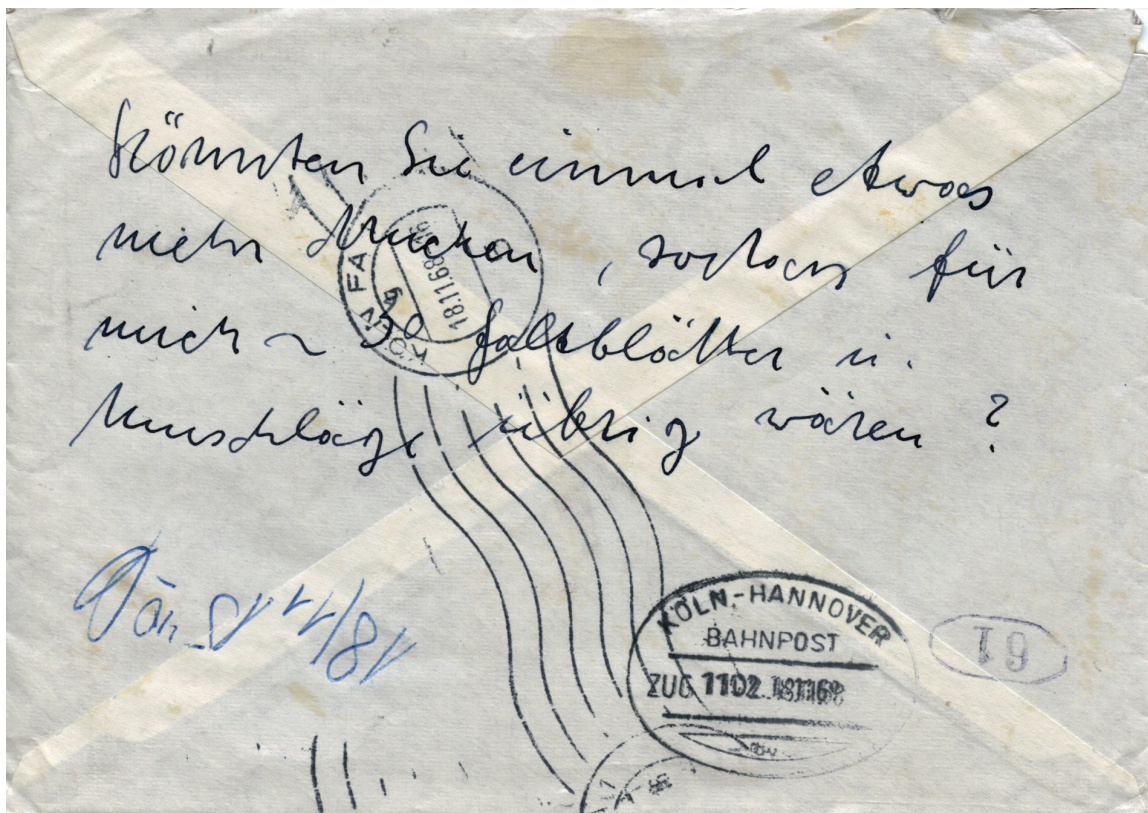 Könnten Sie einmal etwas
mehr drucken, sodass für
mich ~ 30 Faltblätter u.
Umschläge übrig wären?
KÖLN FA
18.11.68
18/11
KÖLN-HANNOVER
BAHNPOST
ZUG 1102 181168
61